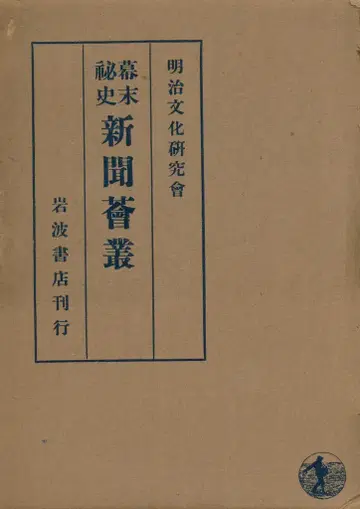 明治文化研究會
幕末
祕史
新聞薈叢
岩波書店刊行